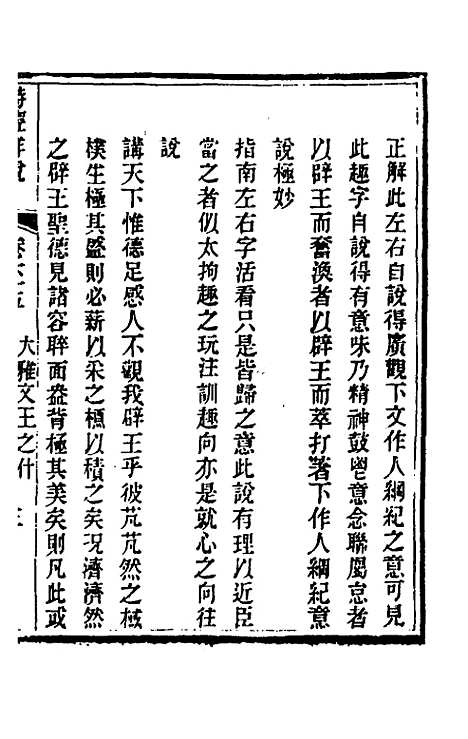 正解此左右自說得廣觀下文作人綱紀之意可見
此趣字自說得有意味乃精神鼓鬯意念聯屬怠者
以辟王而奮渙者以辟王而萃打著下作人綱紀意
說極妙
指南左右字活看只是皆歸之意此說有理以近臣
當之者似太拘趣之玩注訓趣向亦是就心之向往
說
講天下惟德足感人不觀我辟王乎彼芃芃然之棫
樸生極其盛則必薪以采之槱以積之矣況濟濟然
之辟王聖德見諸容睟面盎背極其美矣則凡此或
詩經詳說 卷六十五 大雅文王之什 三